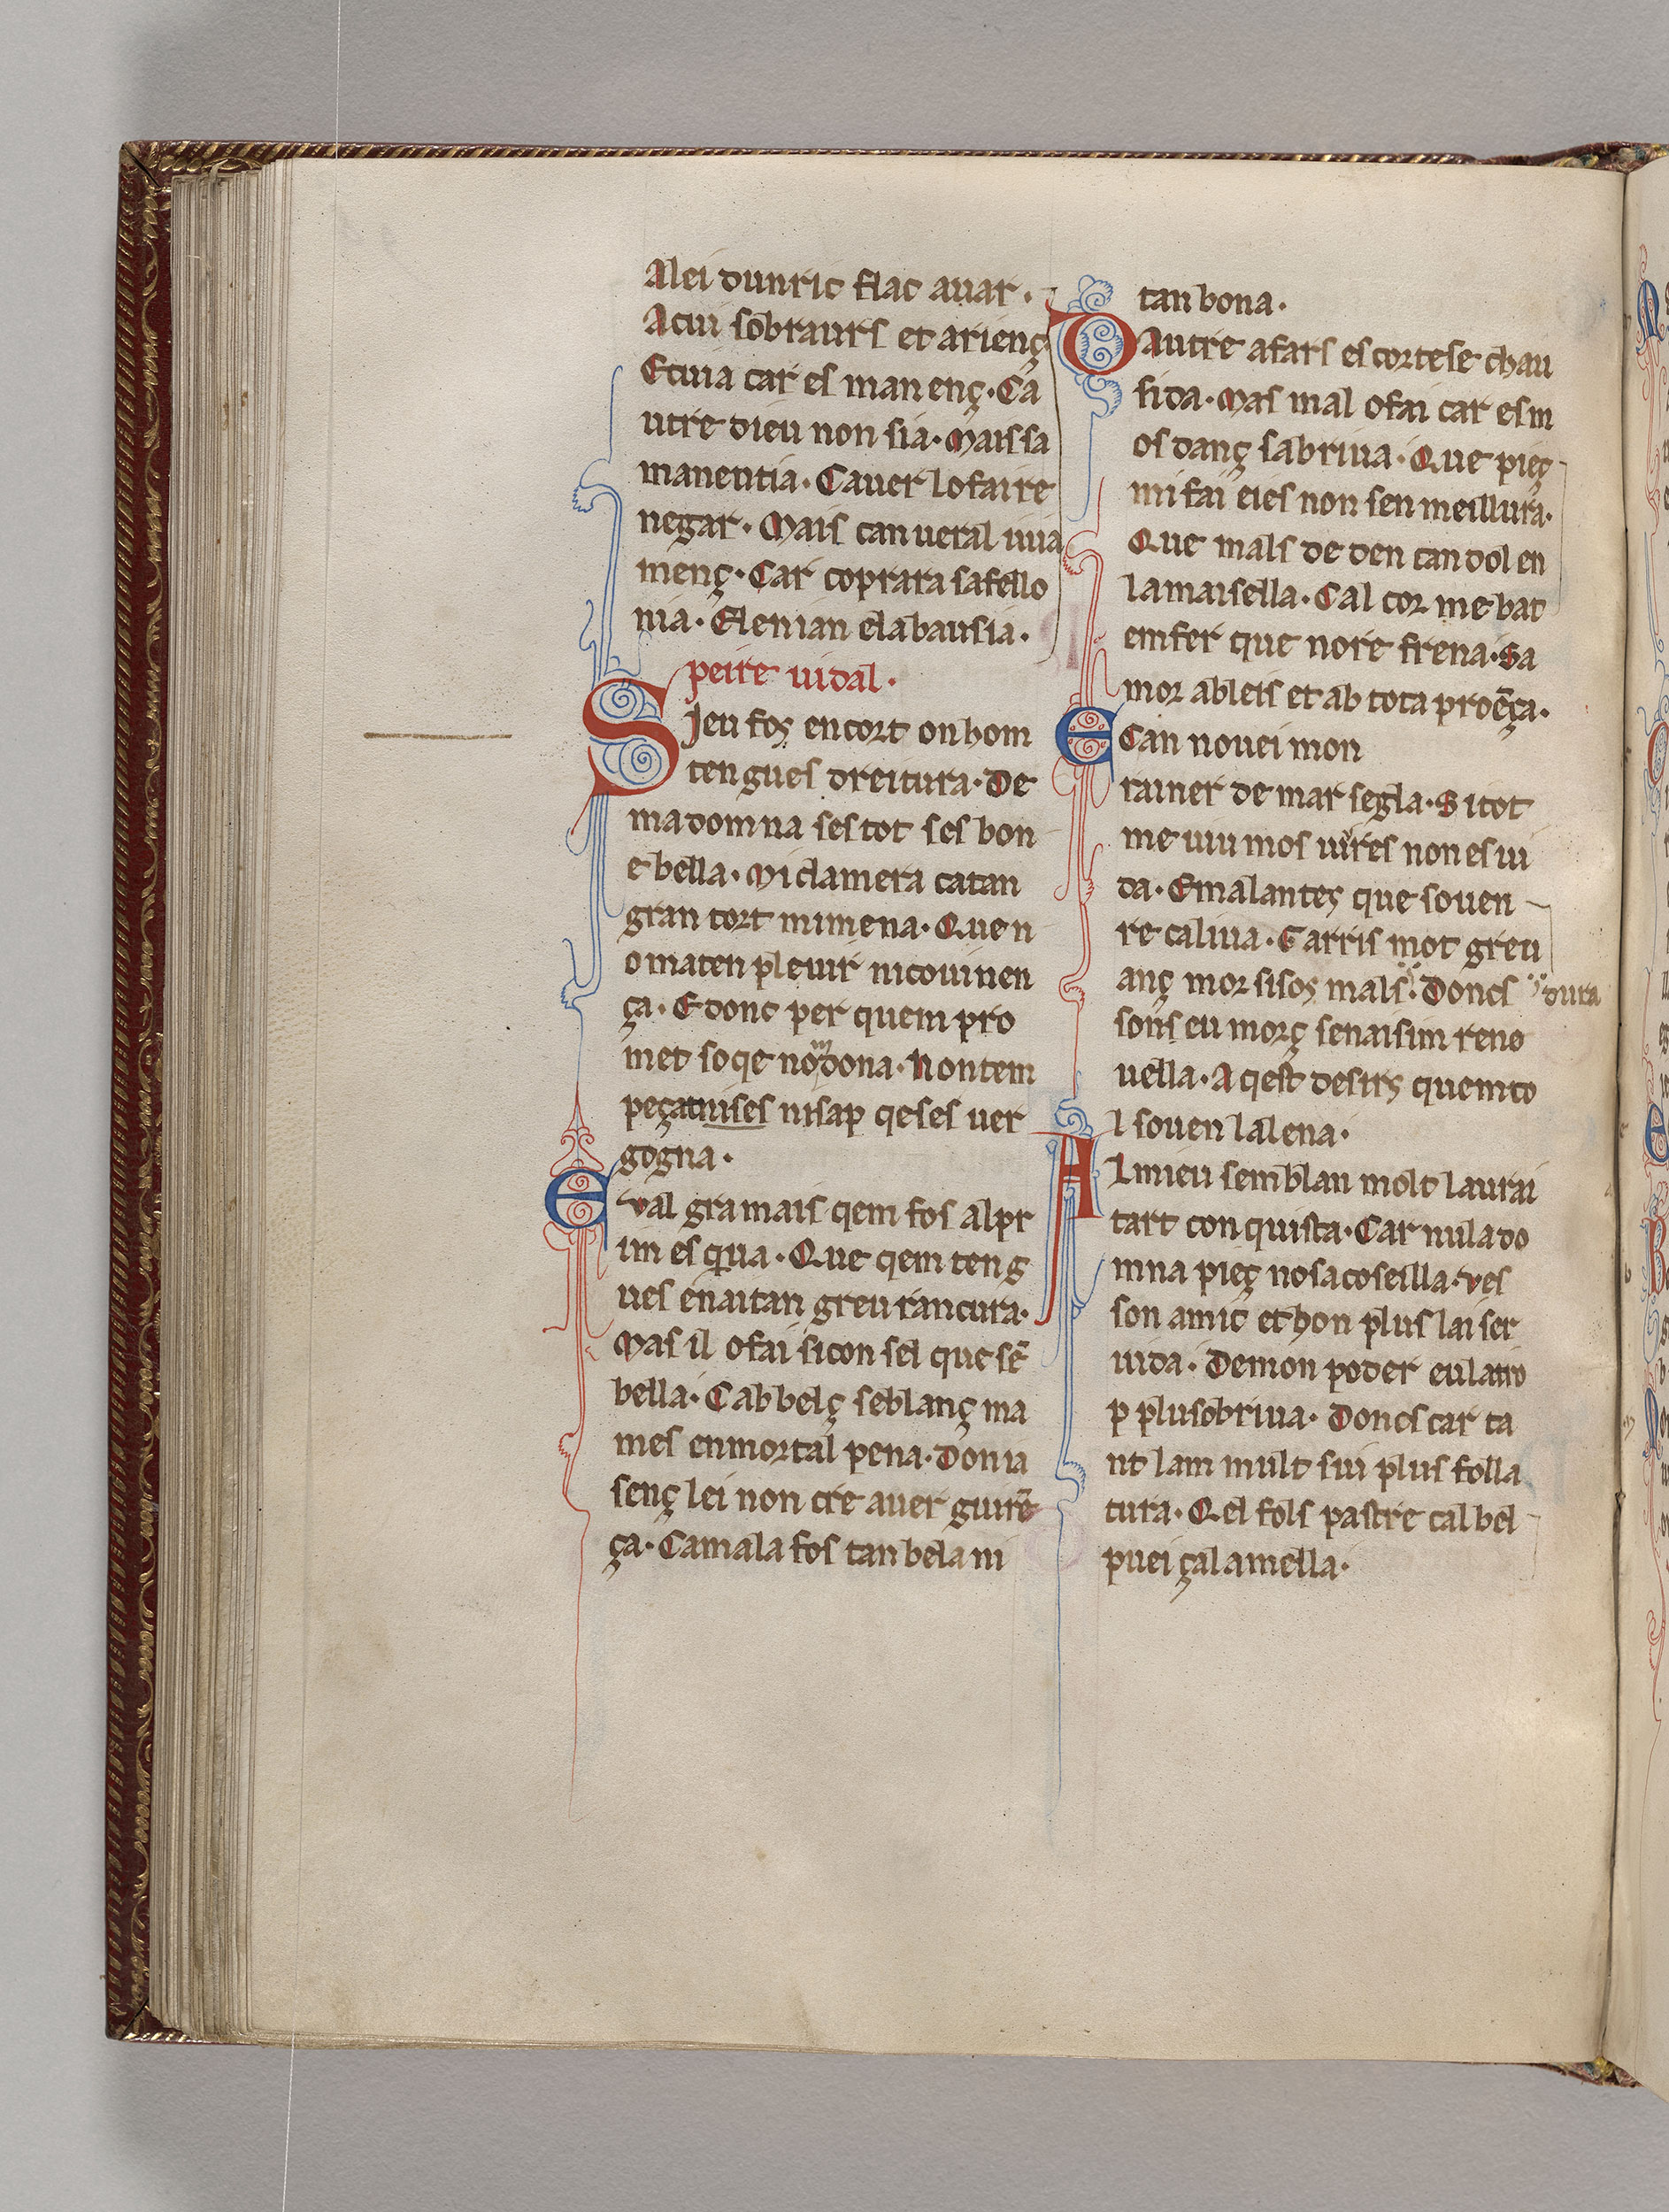 Alei dunric flac auar.
Acui sobraurs et arienç
Ecuia car es man enç. Ca
utre dieu non sia. Mais sa
manentia. Cauer lo faire
negar. Mais can ueral uiua
menç. Car coprara safello
nia. Elenian elabausia.
peire uidal.
Sieu fos en cort on hom
tengues dreitura. De
ma domna ses tot ses bon
e bella. Mi clamera catan
gran tort mimena. Quen
o maten pleuir ni couinen
ça. E donc per quem pro
met so qe nomdona. Non tem
peçat nises nisap qe ses uer
gogna.
E ual gra mais qem fos al pr
im esqua. Que qem teng
ues enaitan greu rancura.
Mas il o fai si con sel que sē
bella. Cab belç seblanç ma
mes en mortal pena. Don ia
senç lei non cre auer guirē
ça. Camala fos tan bela ni
tan bona.
Dautre afars es cortes e chau
sida. Mas mal o fai car es m
os danç sabriua. Que pieç
mi fai e ies non sen meillura.
Que mals de den can dol en
la maisella. Cal cor me bat
em fer que no re frena. Sa
mor ab leis et ab tota proēça.
E can no uei mon
rainer de mar segla. Si tot
me uiu mos uires non es ui
da. E malantes que souen
re caliua. Garris mot greu
anç mor si sos mals dura. Doncs
sons eu morç senaisim reno
uella. Aqest desirs quem to
l souen lalena.
Al mieu semblan molt laurai
tart conquista. Car nula do
mna pieç no sacoseilla. Ves
son amic et hon plus lai ser
uida. De mon poder eu latro
p plus obriua. Doncs car ta
nt lam mult sui plus folla
tura. Qel fols pastre cal bel
puei çalamella.